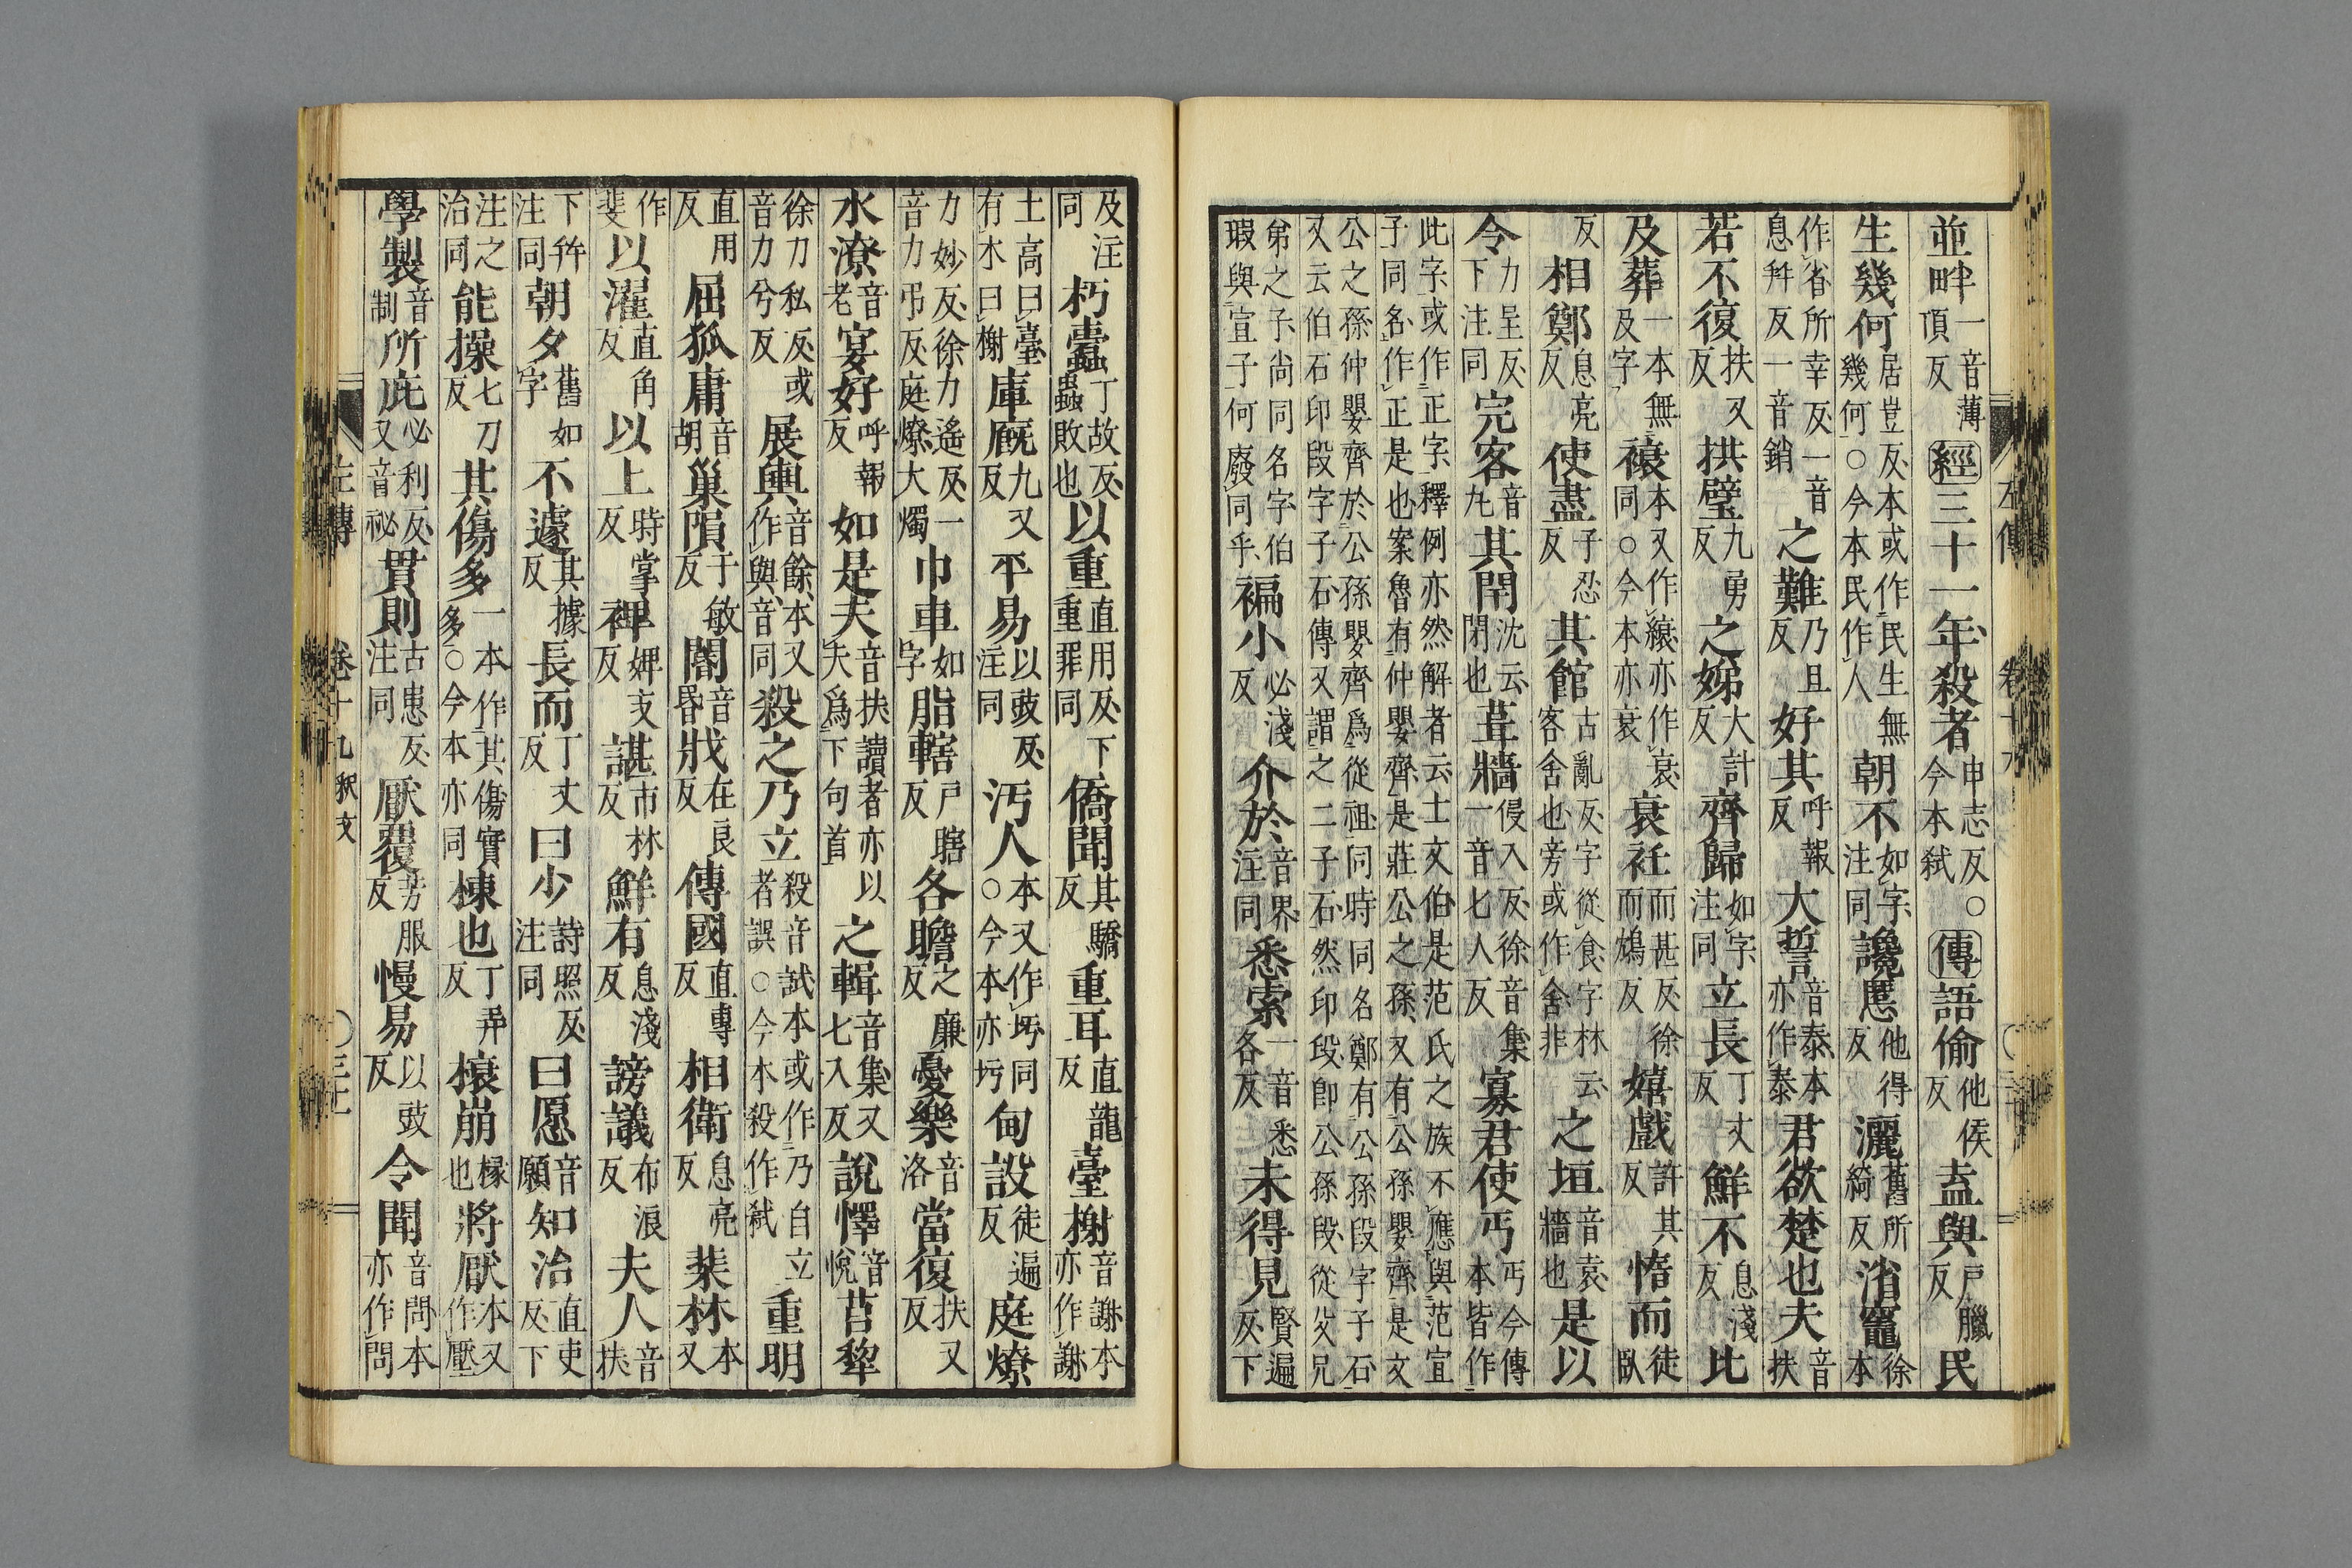 並畔一音薄頂反經三十一年殺者申志反○今本弑傳語偷他侯反盍與戶臘反民
生幾何居豈反本或作民生無幾何○今本民作人朝不如字注同讒慝他得反灑舊所綺反消竈徐本
作省所幸反一音息井反一音銷之難乃旦反好其呼報反大誓音泰本亦作泰君欲楚也夫音扶
若不復扶又反拱璧九勇反之娣大計反齊歸如字注同立長丁丈反鮮不息淺反比
及葬一本無及字䙚本又作縗亦作衰同○今本亦衰衰衽而甚反徐而鴆反嬉戲許其反惰而徒臥
反相鄭息亮反使盡子忍反其館古亂反字從食字林云客舍也旁或作舍非之垣音袁牆也是以
令力呈反下注同完客音丸其閈沈云閉也葺牆侵入反徐音集一音七人反寡君使丐丐今傳本皆作
此字或作正字釋例亦然解者云士文伯是范氏之族不應與范宣子同名作正是也案魯有仲嬰齊是莊公之孫又有公孫嬰齊是文
公之孫仲嬰齊於公孫嬰齊爲從祖同時同名鄭有公孫段字子石又云伯石印段字子石傳又謂之二子石然印段卽公孫段從父兄
弟之子尚同名字伯瑕與宣子何廢同乎褊小必淺反介於音界注同悉索一音悉各反未得見賢遍反下
及注同朽蠹丁故反蟲敗也以重直用反下重罪同僑聞其驕反重耳直龍反臺榭音謝本亦作謝
土高曰臺有木曰榭庫廄九又反平易以豉反注同汚人本又作圬同○今本亦圬甸設徒遍反庭燎
力妙反徐力遙反一音力弔反庭燎大燭巾車如字脂轄戶瞎反各瞻之廉反憂樂音洛當復扶又反
水潦音老宴好呼報反如是夫音扶讀者亦以夫爲下句首之輯音集又七入反說懌音悅莒犂
徐力私反或音力兮反展輿音餘本又作與音同殺之乃立殺音試本或作乃自立者誤○今本殺作弑重明
直用反屈狐庸音胡巢隕于敏反閽音昬戕在良反傳國直專反相衛息亮反棐林本又
作斐以濯直角反以上時掌反裨婢支反諶市林反鮮有息淺反謗議布浪反夫人音扶
下笇注同朝夕舊如字不遽其據反長而丁丈反曰少詩照反注同曰愿音願知治直吏反下
注之治同能操七刀反其傷多一本作其傷實多○今本亦同棟也丁弄反榱崩椽也將厭本又作壓
學製音制所庇必利反又音祕貫則古患反注同厭覆芳服反慢易以豉反令聞音問本亦作問
左傳 卷十九 釈文